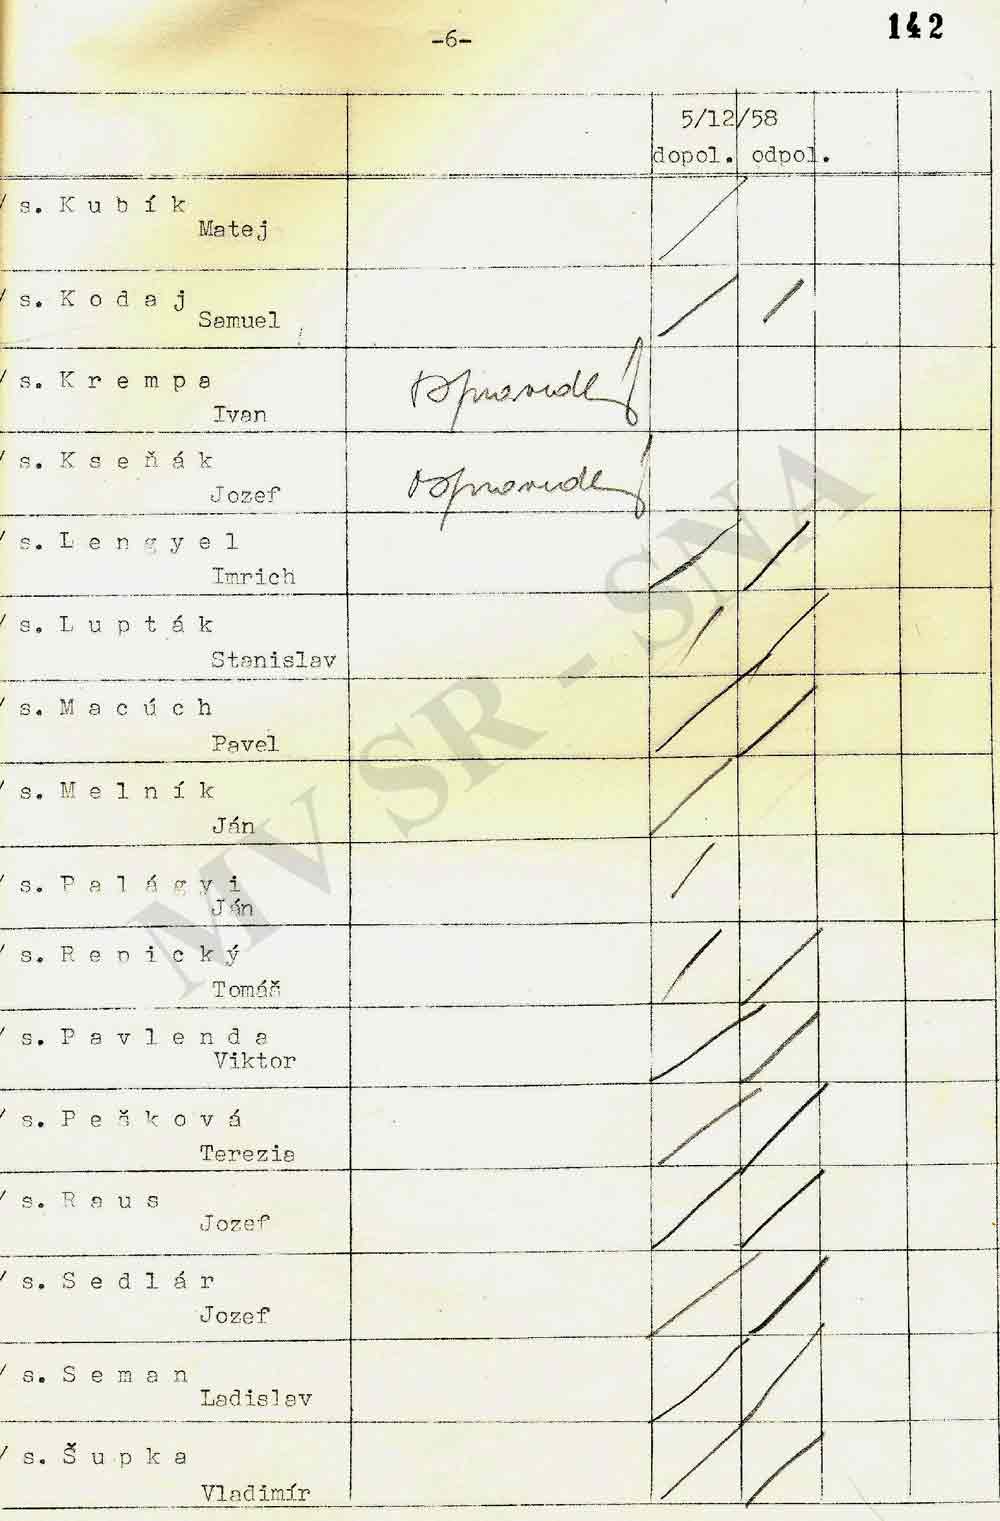 -6-
142
5/12/58
dopol. odpol.
s. K u b í k
Matej
s. K o d a j
Samuel
s. K r e m p a
Ivan
ospravedl
s. K s e ň á k
Jozef
ospravedl
s. L e n g y e l
Imrich
s. L u p t á k
Stanislav
s. M a c ú c h
Pavel
s. M e l n í k
Ján
s. P a l á g y i
Ján
s. R e p i c k ý
Tomáš
s. P a v l e n d a
Viktor
s. P e š k o v á
Terezia
s. R a u s
Jozef
s. S e d l á r
Jozef
s. S e m a n
Ladislav
s. Š u p k a
Vladimír
MV SR - SNA